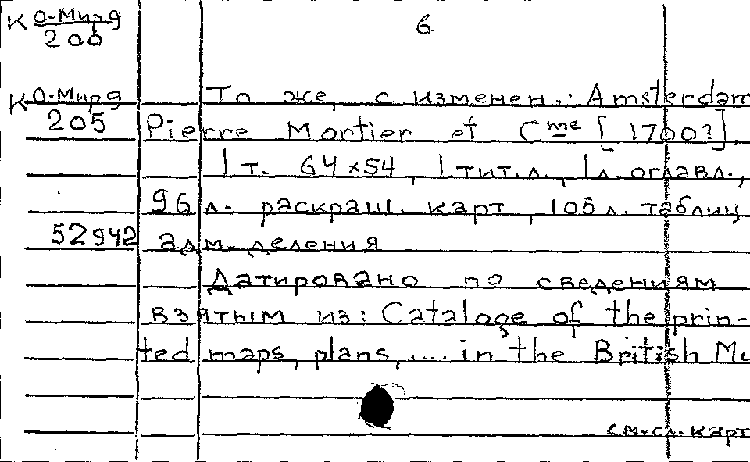 К О-Мир9 6
200
К О-Мир9 То же, с изменен.: Amsterdam
205 Pierre Mortier et Cme [1700?]
1 т. 64x54, 1 тит.л., 1 л. оглавл.,
96 л. раскраш. карт, 105 л. таблиц
52942 адм. деления
Датировано по сведениям
взятым из: Cataloge of the prin-
ted maps, plans, .... in the British Mu
см.сл.карт